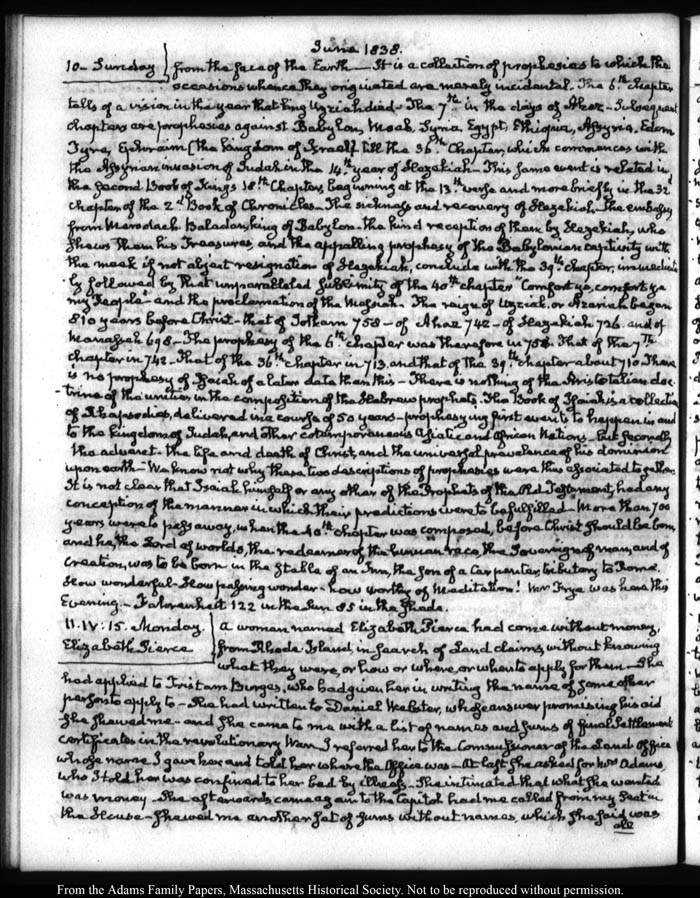 June 1838.
10 - Sunday
from the face of the Earth — It is a collection of prophesies to which the
occasions whence they originated are merely incidental. The 6th chapter
tells of a vision in the year that king Uzziah died - The 7th in the days of Ahaz - Subsequent
chapters are prophesies against Babylon, Moab, Syria, Egypt, Ethiopia, Assyria, Edom
Tyre, Ephraim (the kingdom of Israel) till the 36th Chapter, which commences with
the Assyrian invasion of Judah in the 14th year of Hezekiah - This same event is related in
the second Book of Kings 18th Chapter, beginning at the 13th verse and more briefly in the 32d
chapter of the 2d Book of Chronicles - The sickness and recovery of Hezekiah - the embassy
from Merodach Baladan, king of Babylon - the kind reception of them by Hezekiah, who
shews them his Treasures, and the appalling prophesy of the Babylonian captivity with
the meek if not abject resignation of Hezekiah, conclude with the 39th chapter, immediate-
ly followed by that unparalleled sublimity of the 40th chapter "Comfort ye, comfort ye
my People - and the proclamation of the Messiah - The reign of Uzziah or Azariah began
810 years before Christ - that of Jotham 758 - of Ahaz 742 - of Hezekiah 726. and of
Manasseh 698 - The prophesy of the 6th chapter was therefore in 758. That of the 7th
chapter in 742. That of the 36th chapter in 713. and that of the 39th chapter about 710. There
is no prophesy of Isaiah of a later date than this - There is nothing of the Aristotelian doc-
trine of the unities in the composition of the Hebrew prophets. The Book of Isaiah is a collection
of Rhapsodies, delivered in a course of 50 years - prophesying first events to happen in and
to the kingdom of Judah, and other cotemporaneous Asiatic and African Nations, but secondly
the advent - the life and death of Christ, and the universal prevalence of his dominion
upon earth - We know not why these two descriptions of prophesies were thus associated together
It is not clear that Isaiah himself or any other of the Prophets of the Old Testament, had any
conception of the manner in which their predictions were to be fulfilled - More than 700
years were to pass away, when the 40th chapter was composed, before Christ should be born,
and he, the Lord of worlds, the redeemer of the human race, the Sovereign of man, and of
creation, was to be born in the stable of an Inn, the son of a Carpenter, tributary to Rome.
How wonderful - How passing wonder - how worthy of meditation! Mr Frye was here this
Evening - Fahrenheit 122 in the Sun 85 in the shade.
11. IV. 15. Monday.
Elizabeth Pierce
A woman named Elizabeth Pierce had come without money,
from Rhode Island in search of Land claims, without knowing
what they were, or how or where, or whom to apply for them - She
had applied to Tristam Burges, who had given her in writing the name of some other
persons to apply to - She had written to Daniel Webster, whose answer promising his aid
she shewed me - and she came to me with a list of names and sums of final settlement
certificates in the revolutionary War. I referred her to the Commissioner of the Land Office
whose name I gave her and told her where the Office was - At last she asked for Mrs Adams,
who I told her was confined to her bed by illness - She intimated that what she wanted
was money - She afterwards came again to the Capitol had me called from my seat in
the House - shewed me another set of sums without names, which she said was
all
From the Adams Family Papers, Massachusetts Historical Society. Not to be reproduced without permission.